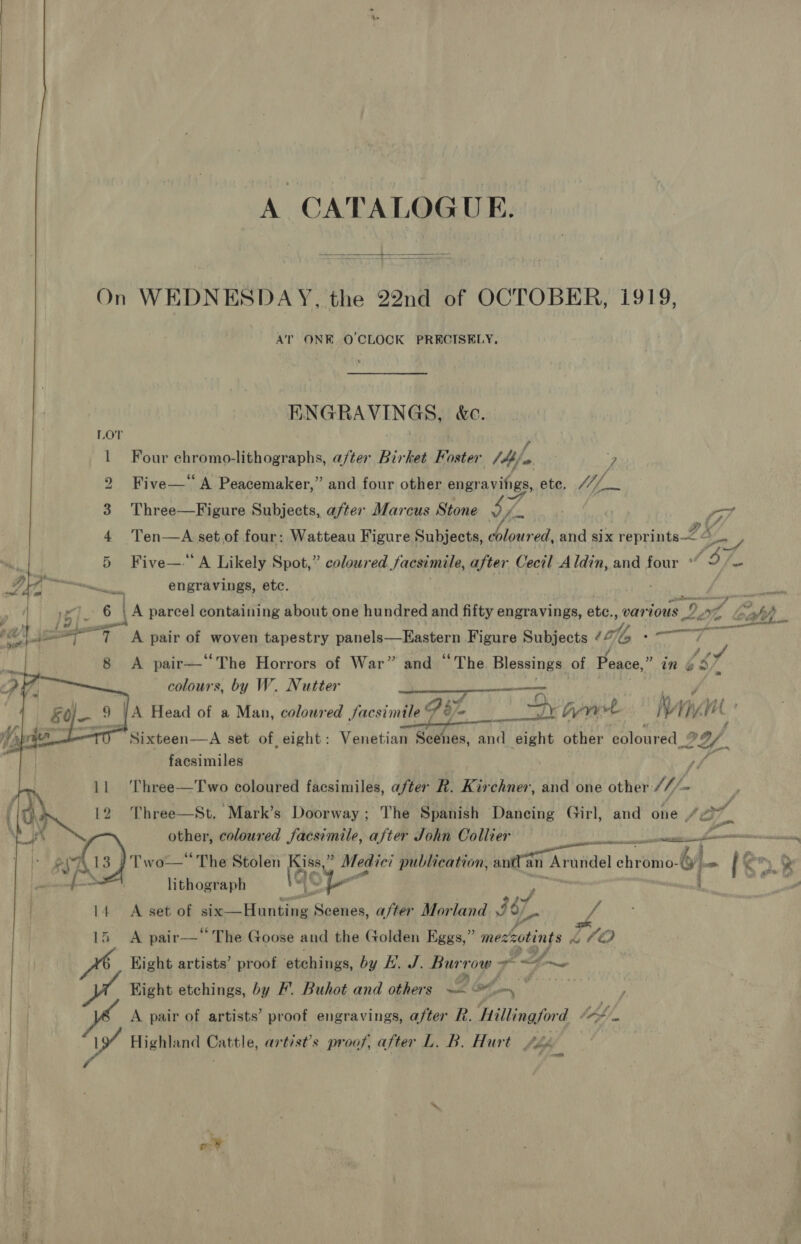 A CATALOGUE.
On WEDNESDAY, the 22nd of OCTOBER, 1919,
AT ONE O'CLOCK PRECISELY.
ENGRAVINGS, &c.
LOT
1 Four chromo-lithographs, after Birket Foster
2 Five—“A Peacemaker,” and four other engravings, etc.
3 Three—Figure Subjects, after Marcus Stone
4 Ten—A set of four: Watteau Figure Subjects, coloured, and six reprints
5 Five—“A Likely Spot,” coloured facsimile, after Cecil Aldin, and four
engravings, etc.
6 A parcel containing about one hundred and fifty engravings, etc., various
7 A pair of woven tapestry panels—Eastern Figure Subjects
8 A pair—“The Horrors of War” and “The Blessings of Peace,” in
colours, by W. Nutter
9 A Head of a Man, coloured facsimile
10 Sixteen—A set of eight: Venetian Scenes, and eight other coloured
facsimiles
11 Three—Two coloured facsimiles, after R. Kirchner, and one other
12 Three—St. Mark's Doorway; The Spanish Dancing Girl, and one
other, coloured facsimile, after John Collier
13 Two—“The Stolen Kiss,” Medici publication, and an Arundel chromo-
lithograph
14 A set of six—Hunting Scenes, after Morland
15 A pair—“The Goose and the Golden Eggs,” mezzotints
16 Eight artists' proof etchings, by E. J. Burrow
17 Eight etchings, by F. Buhot and others
18 A pair of artists' proof engravings, after R. Hillingford
19 Highland Cattle, artist's proof, after L. B. Hurt